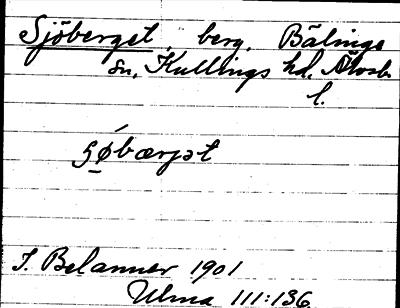 Sjöberget, berg, Bälinge
sn, Kullings hd, Älvsb.
l.
ʃǿbærjət
I. Belanner 1901
Ulma 111:136